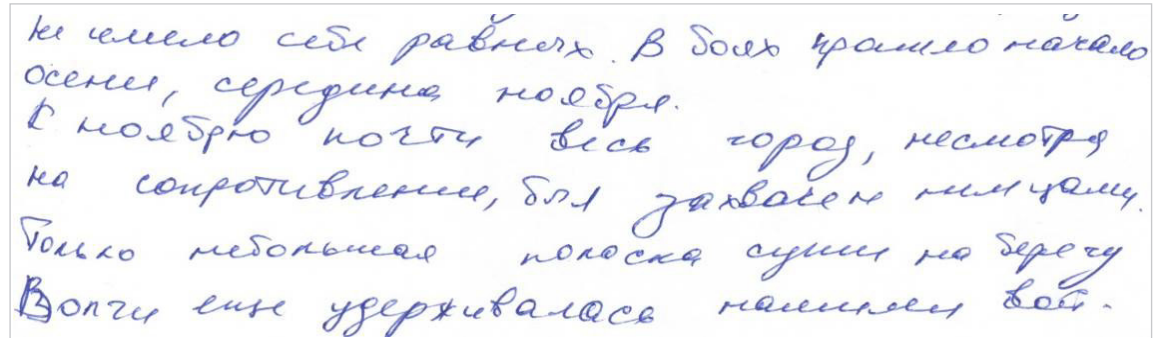 не имело себе равных. В боях прошло начало
осени, середина ноября.
К ноябрю почти весь город, несмотря
на сопротивление, был захвачен немцами.
Только небольшая полоска суши на берегу
Волги еще удерживалась нашими вой-